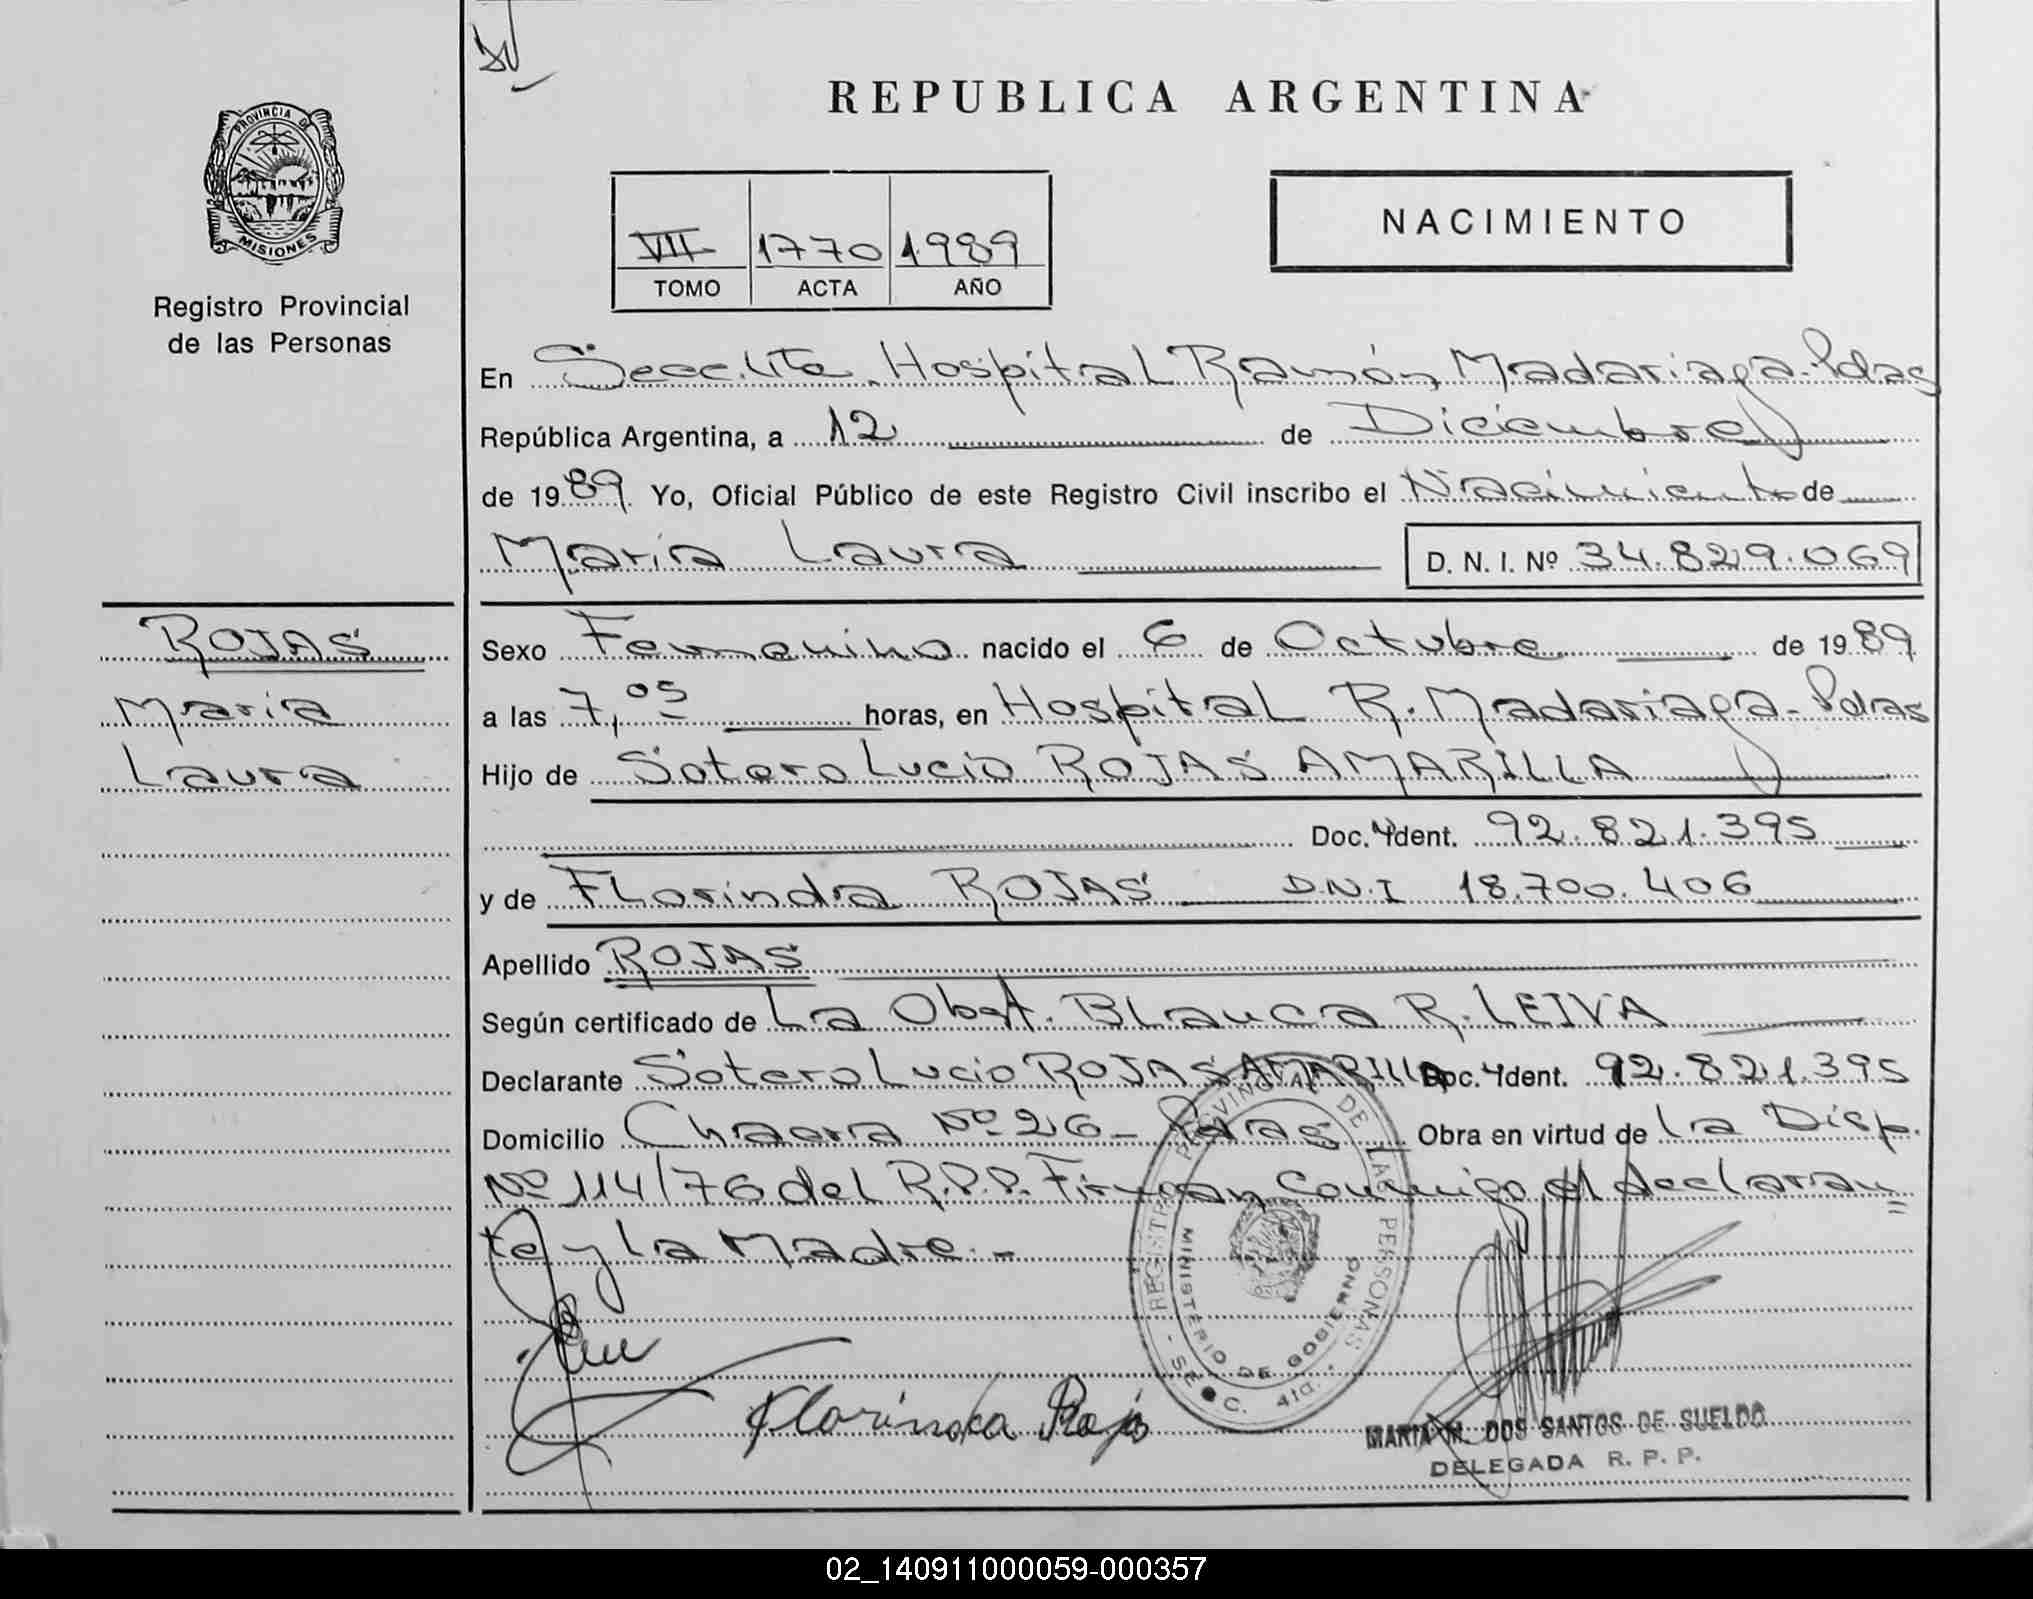 REPUBLICA ARGENTINA
PROVINCIA DE
MISIONES
Registro Provincial
de las Personas
VII 1770 1989
TOMO ACTA AÑO
NACIMIENTO
En Secc. 4ta. Hospital Ramón Madariaga - Pdas
República Argentina, a 12 de Diciembre
de 1989. Yo, Oficial Público de este Registro Civil inscribo el Nacimiento de
María Laura D. N. I. Nº 34.829.069
ROJAS
María
Laura
Sexo Femenino nacido el 6 de Octubre de 1989
a las 7,05 horas, en Hospital R. Madariaga - Pdas
Hijo de Sotero Lucio ROJAS AMARILLA
Doc. Ydent. 92.821.395
y de Florinda ROJAS D.N.I 18.700.406
Apellido ROJAS
Según certificado de La Obst. Blanca R. LEIVA
Declarante Sotero Lucio ROJAS AMARILLA Doc. Ydent. 92.821.395
Domicilio Chacra Nº 26 - Pdas Obra en virtud de La Disp.
Nº 114/76 del R.P.P. Firman Conmigo el declaran=
te y La Madre. -
REGISTRO PROVINCIAL DE LAS PERSONAS
MINISTERIO DE GOBIERNO
SECC. 4ta.
Florinda Rojas
MARIA M. DOS SANTOS DE SUELDO
DELEGADA R. P. P.
02_140911000059-000357